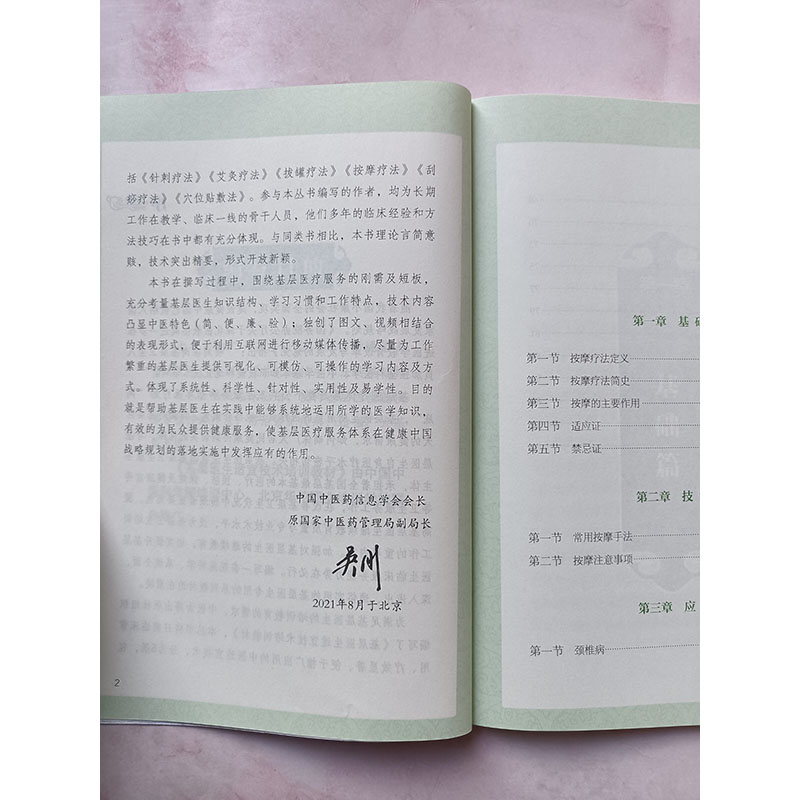 括《针刺疗法》《艾灸疗法》《拔罐疗法》《按摩疗法》《刮
痧疗法》《穴位贴敷法》。参与本丛书编写的作者，均为长期
工作在教学、临床一线的骨干人员，他们多年的临床经验和方
法技巧在书中都有充分体现。与同类书相比，本书理论言简意
赅，技术突出精要，形式开放新颖。
本书在撰写过程中，围绕基层医疗服务的刚需及短板，
充分考量基层医生知识结构、学习习惯和工作特点，技术内容
凸显中医特色（简、便、廉、验）；独创了图文、视频相结合
的表现形式，便于利用互联网进行移动媒体传播，尽量为工作
繁重的基层医生提供可视化、可模仿、可操作的学习内容及方
式。体现了系统性、科学性、针对性、实用性及易学性。目的
就是帮助基层医生在实践中能够系统地运用所学的医学知识，
有效的为民众提供健康服务，使基层医疗服务体系在健康中国
战略规划的落地实施中发挥应有的作用。
中国中医药信息学会会长
原国家中医药管理局副局长
2021年8月于北京
2
第一章 基础
第一节 按摩疗法定义
第二节 按摩疗法简史
第三节 按摩的主要作用
第四节 适应证
第五节 禁忌证
第二章 技
第一节 常用按摩手法
第二节 按摩注意事项
第三章 应
第一节 颈椎病